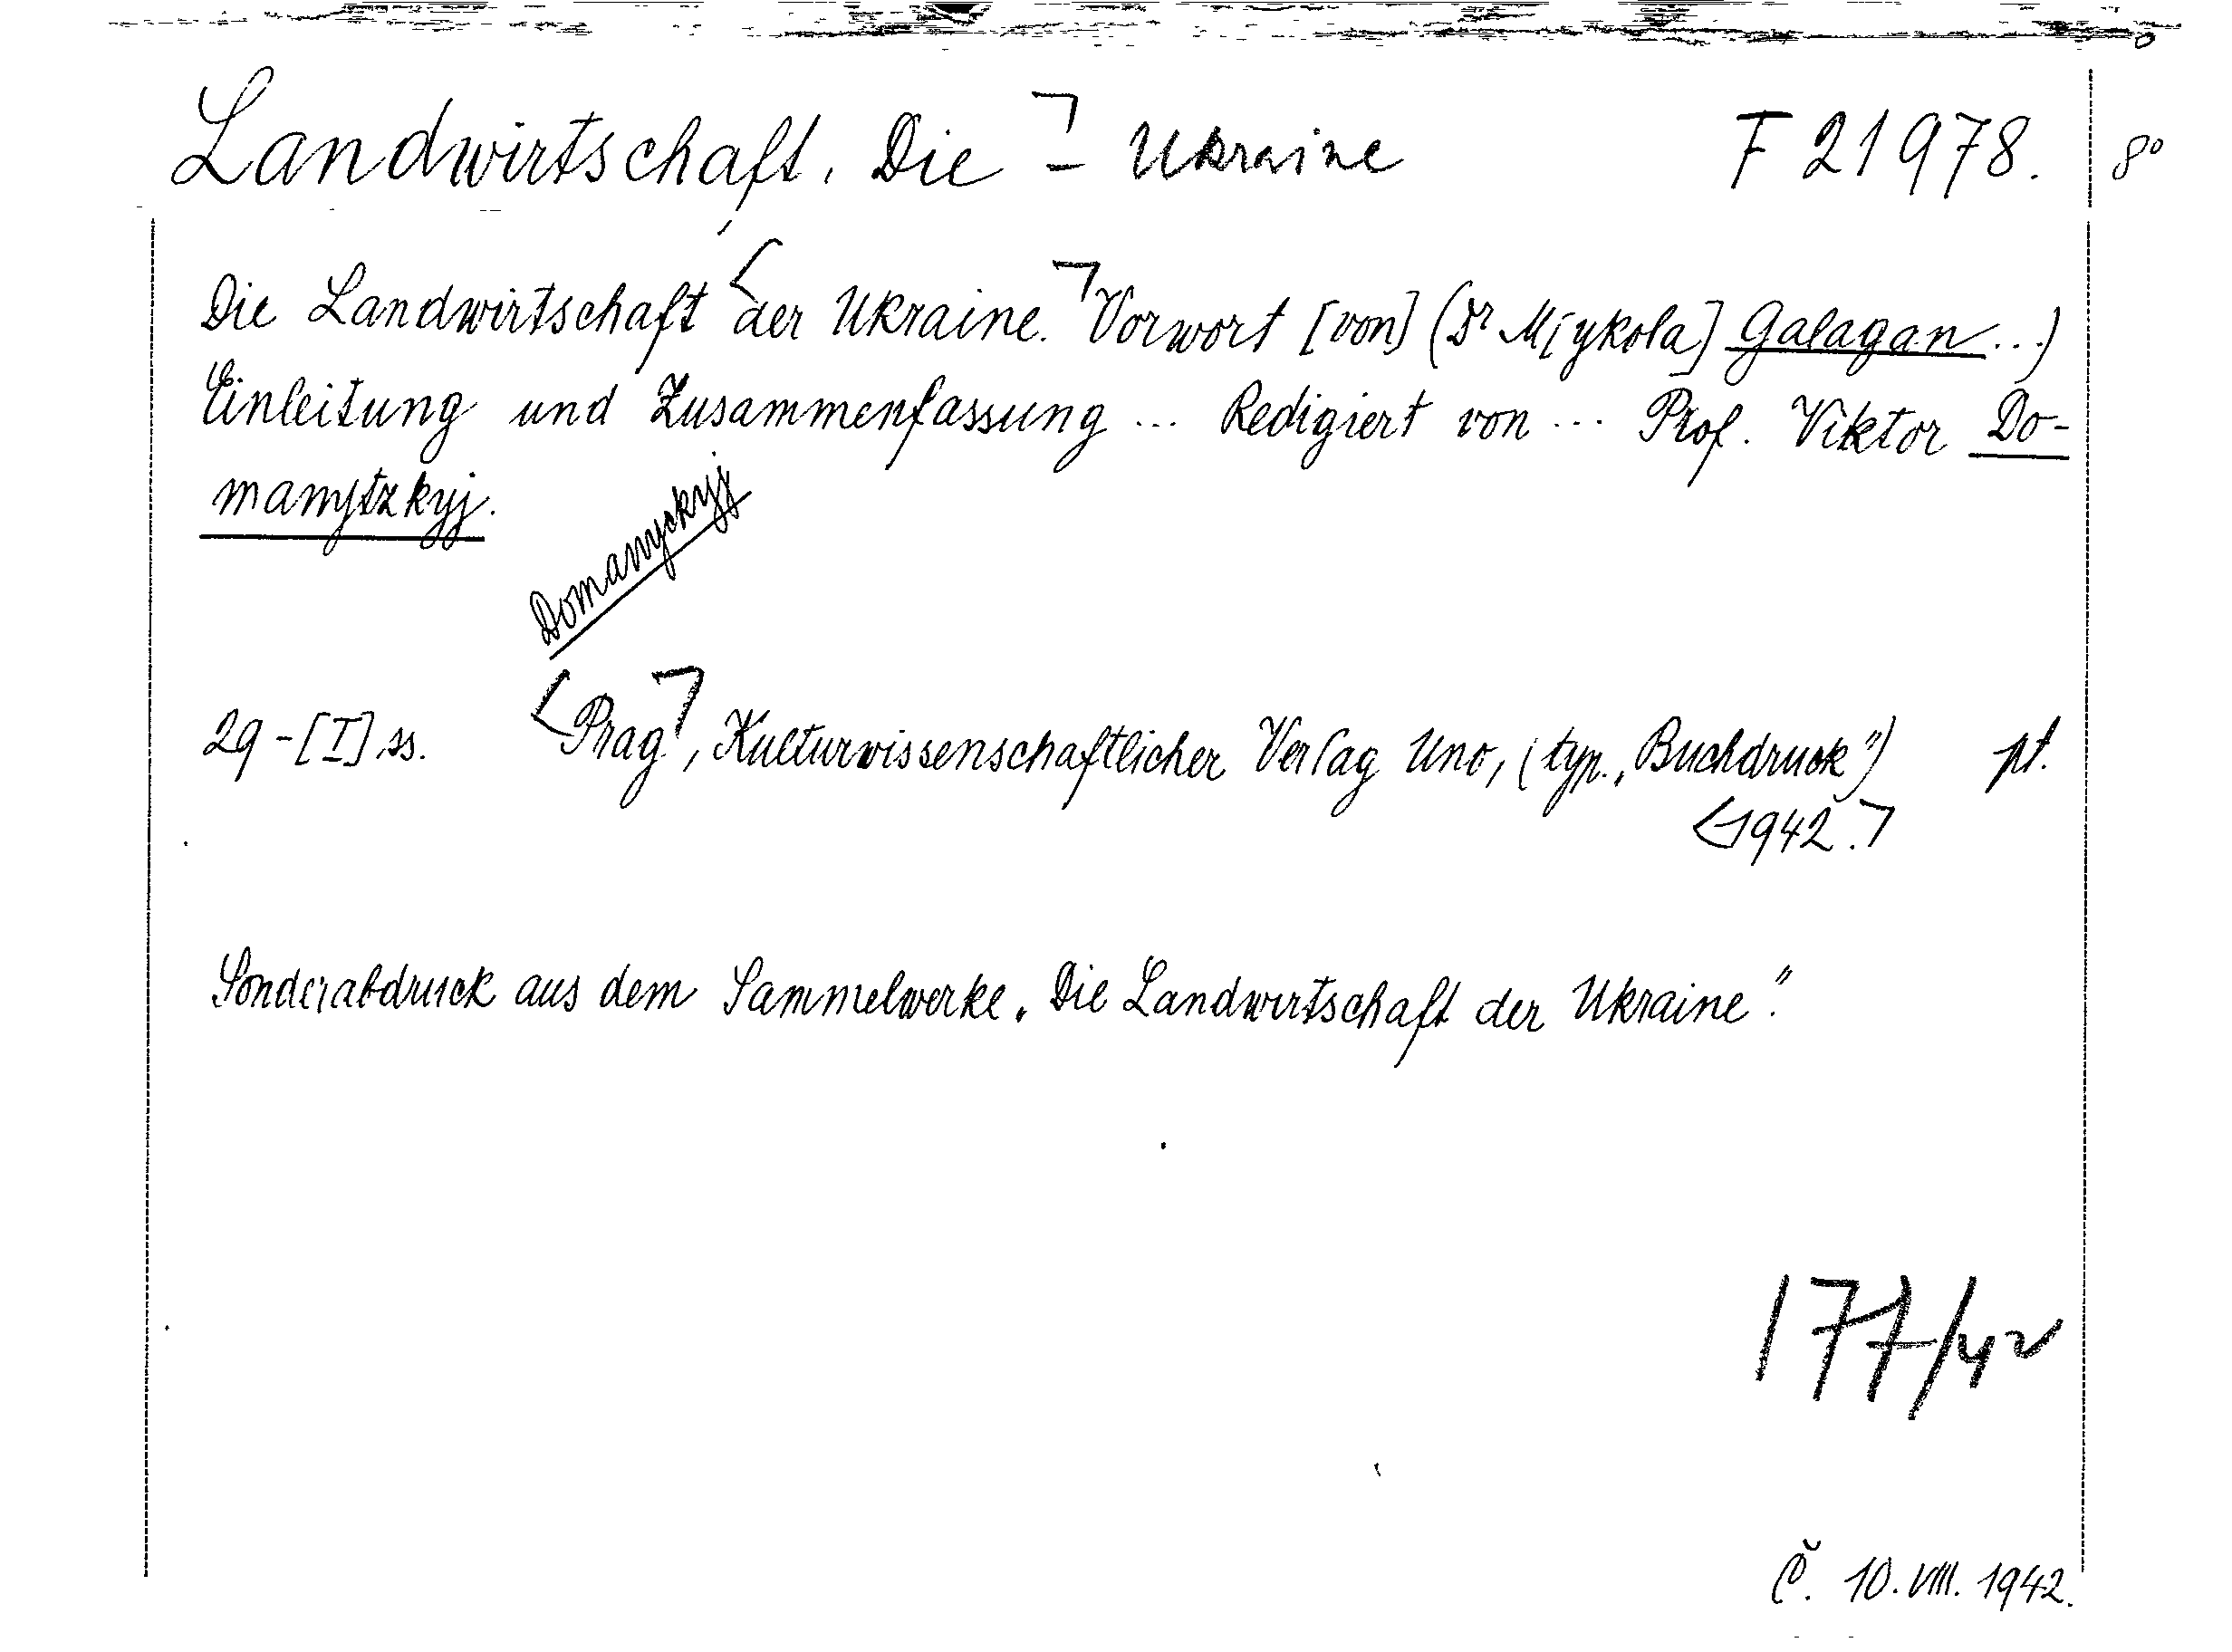 Landwirtschaft, Die ⌝ - Ukraine F 21978. 8°
Die Landwirtschaft <der Ukraine.⌝ Vorwort [von] (Dr M[ykola] Galagan ...)
Einleitung und Zusammenfassung ... Redigiert von ... Prof. Viktor Do-
manytzkyj.
Domanyckyj
29-[I] ss. <Prag⌝, Kulturwissenschaftlicher Verlag Uno, (typ. „Buchdruck") pt.
<1942.⌝
Sonderabdruck aus dem Sammelwerke „Die Landwirtschaft der Ukraine".
177/42
Č. 10. VIII. 1942.